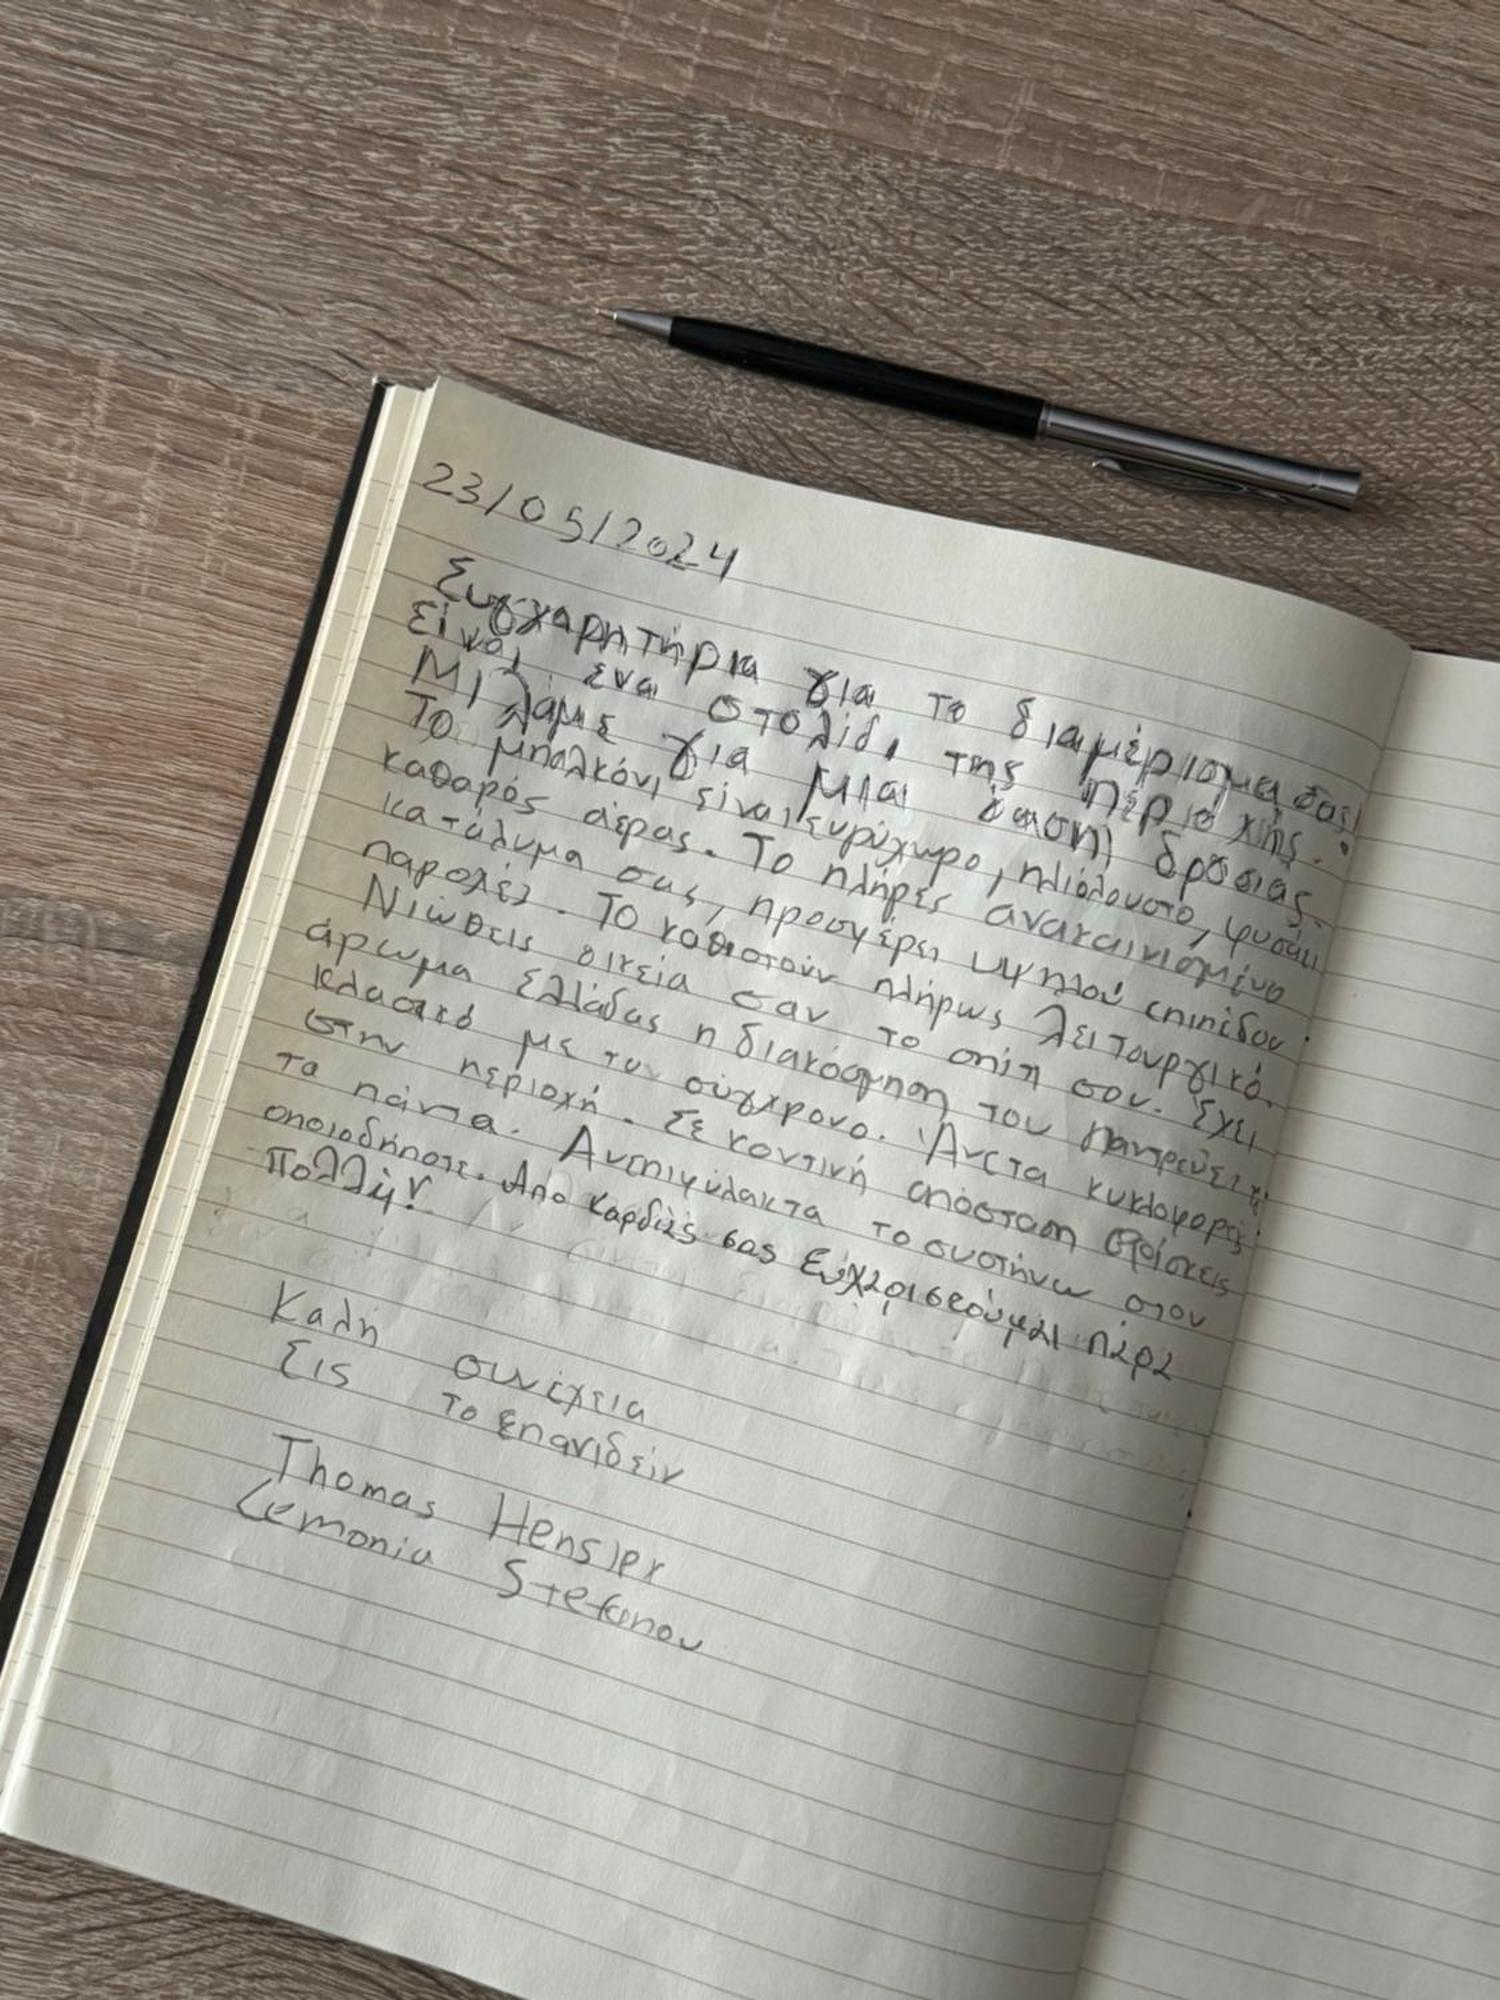 23/05/2024
Συγχαρητήρια για το διαμέρισμα σας!
Είναι ένα στολίδι της περιοχής.
Μιλάμε για μια όαση δροσιάς.
Το μπαλκόνι είναι ευρύχωρο, ηλιόλουστο, φυσάει
καθαρός αέρας. Το πλήρες ανακαινισμένο
κατάλυμα σας, προσφέρει υψηλού επιπέδου
παροχές. Το καθιστούν πλήρως λειτουργικό.
Νιώθεις οικεία σαν το σπίτι σου. Έχει
άρωμα Ελλάδας η διακόσμηση του παντρεύει το
κλασικό με τον σύγχρονο. Άνετα κυκλοφορείς
στην περιοχή. Σε κοντινή απόσταση βρίσκεις
τα πάντα. Ανεπιφύλακτα το συστήνω στον
οποιοδήποτε. Απο καρδιάς σας Ευχαριστούμαι πάρα
πολλή!
Καλή συνέχεια
Εις το επανιδείν
Thomas Hensler
Lemonia Stefanou